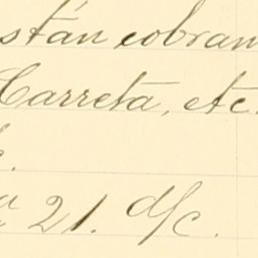 stán cobran
Carreta, etc.
21. d/c.